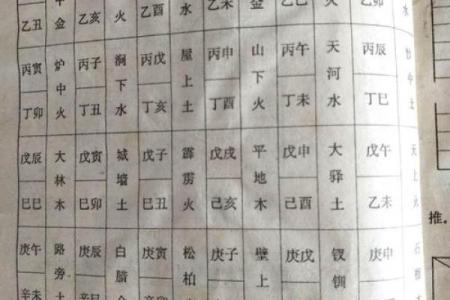 乙丑 金 乙亥 火 乙酉 水 乙未 金 火 乙卯 水
丙寅 炉中火 丙子 涧下水 丙戌 屋上土 丙申 山下火 丙午 天河水 丙辰 沙中土
丁卯 丁丑 丁亥 丁酉 丁未 丁巳
戊辰 大林木 戊寅 城墙土 戊子 霹雳火 戊戌 平地木 戊申 大驿土 戊午 天上火
巳巳 巳卯 巳丑 己亥 己酉 乙未
庚午 路旁土 庚辰 白腊金 庚寅 松柏 庚子 壁上 庚戌 钗钏 庚申 石榴木
辛未 辛巳
推.